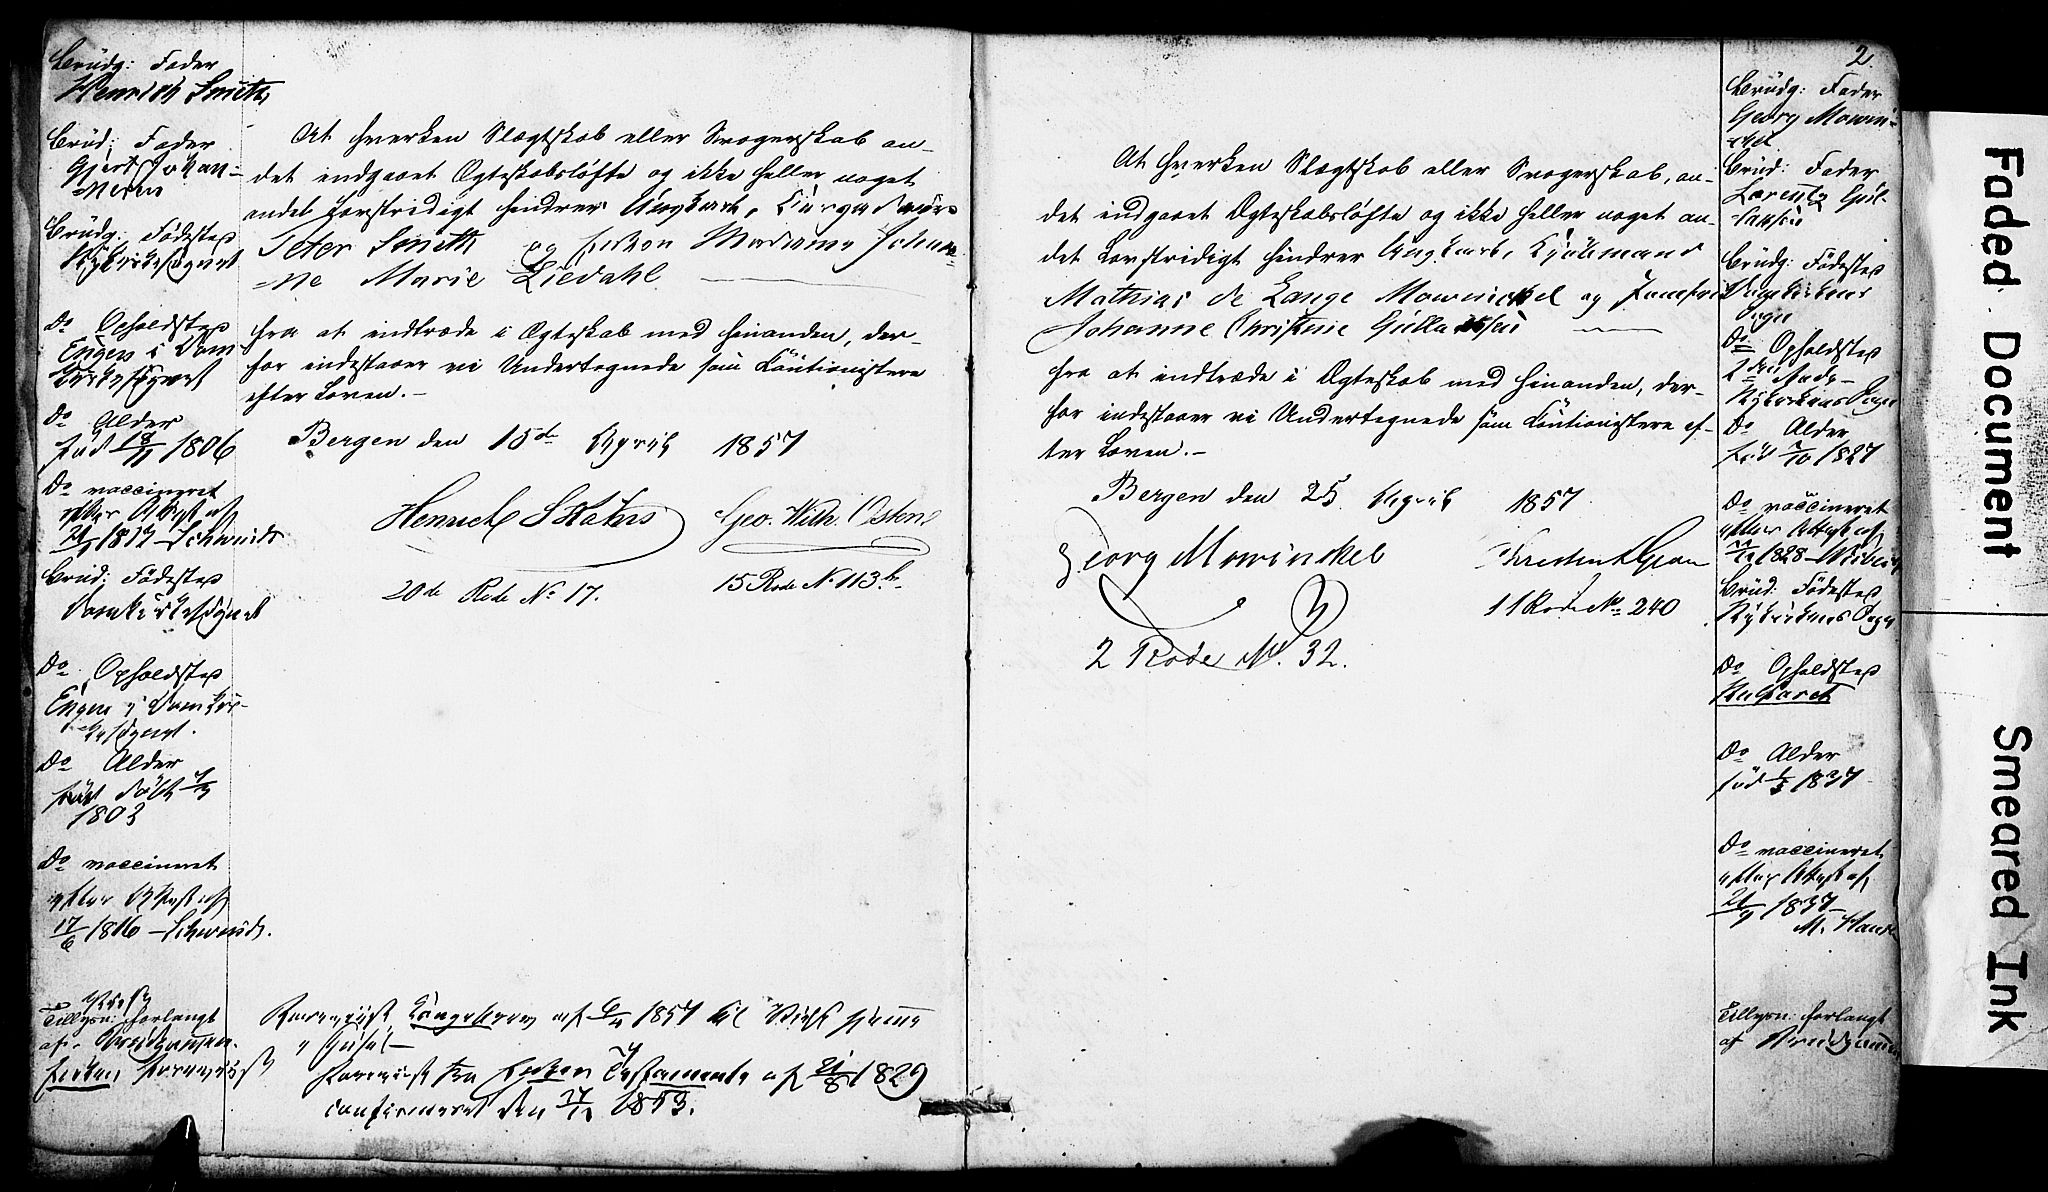 Brudg: Fader
Henrich Smith
Brud: Fader
Gjert Johan-
nesen
Brudg: Fødested
Nykirkesognet
Do Opholdsted
Engen i Dom-
kirkesognet
Do Alder
fød 18/11 1806
Do vaccineret
efter Attest af
1817 Schwindt
Brud: Fødested
Domkirkesognet
Do Opholdsted
Engen i Domkir-
kesognet.
Do Alder
født døbt
1803
Do vaccineret
efter Attest af
17/6 1816 Schwindt.
Tillysn: forlangt
af
Enken
At hverken Slægtskab eller Svogerskab an-
det indgaaet Ægteskabsløfte og ikke heller noget
andet Lovstridigt hindrer Ungkarl,
Peter Smith og Enken Madame Johan-
ne Marie Liedahl
fra at indtræde i Ægteskab med hinanden, der-
for indestaaer vi Undertegnede som Cautionistere
efter Loven.-
Bergen den 15de April 1857
Henrich Geo. Wilh.
20de Rode No 17. 15 Rode No 113 b.
1857 til
Enken Testamente af 21/8 1829
confirmeret den 1853.
2.
At hverken Slægtskab eller Svogerskab, an-
det indgaaet Ægteskabsløfte og ikke heller noget an-
det Lovstridigt hindrer Ungkarl, Kjøbmand
Mathias de Lange Mowinckel og Jomfru
Johanne Christine Gullaksen
fra at indtræde i Ægteskab med hinanden, der-
for indestaaer vi Undertegnede som Cautionistere ef-
ter Loven.-
Bergen den 25 April 1857
Georg Mowinckel
11 Rode No 240
2 Rode No. 32.
Brudg: Fader
Georg Mowin-
ckel
Brud: Fader
Lorentz Gul-
laksen
Brudg: Fødested
Domkirkens
Sogn
Do Opholdsted
2den Rode
Nykirkens Sogn
Do Alder
fød 1827
Do vaccineret
efter Attest af
1828
Brud: Fødested
Nykirkens Sogn
Do Opholdsted
Do Alder
fød 1837
Do vaccineret
efter Attest af
1837
Tillysn: forlangt
af Brudgommen
Faded Document
Smeared Ink